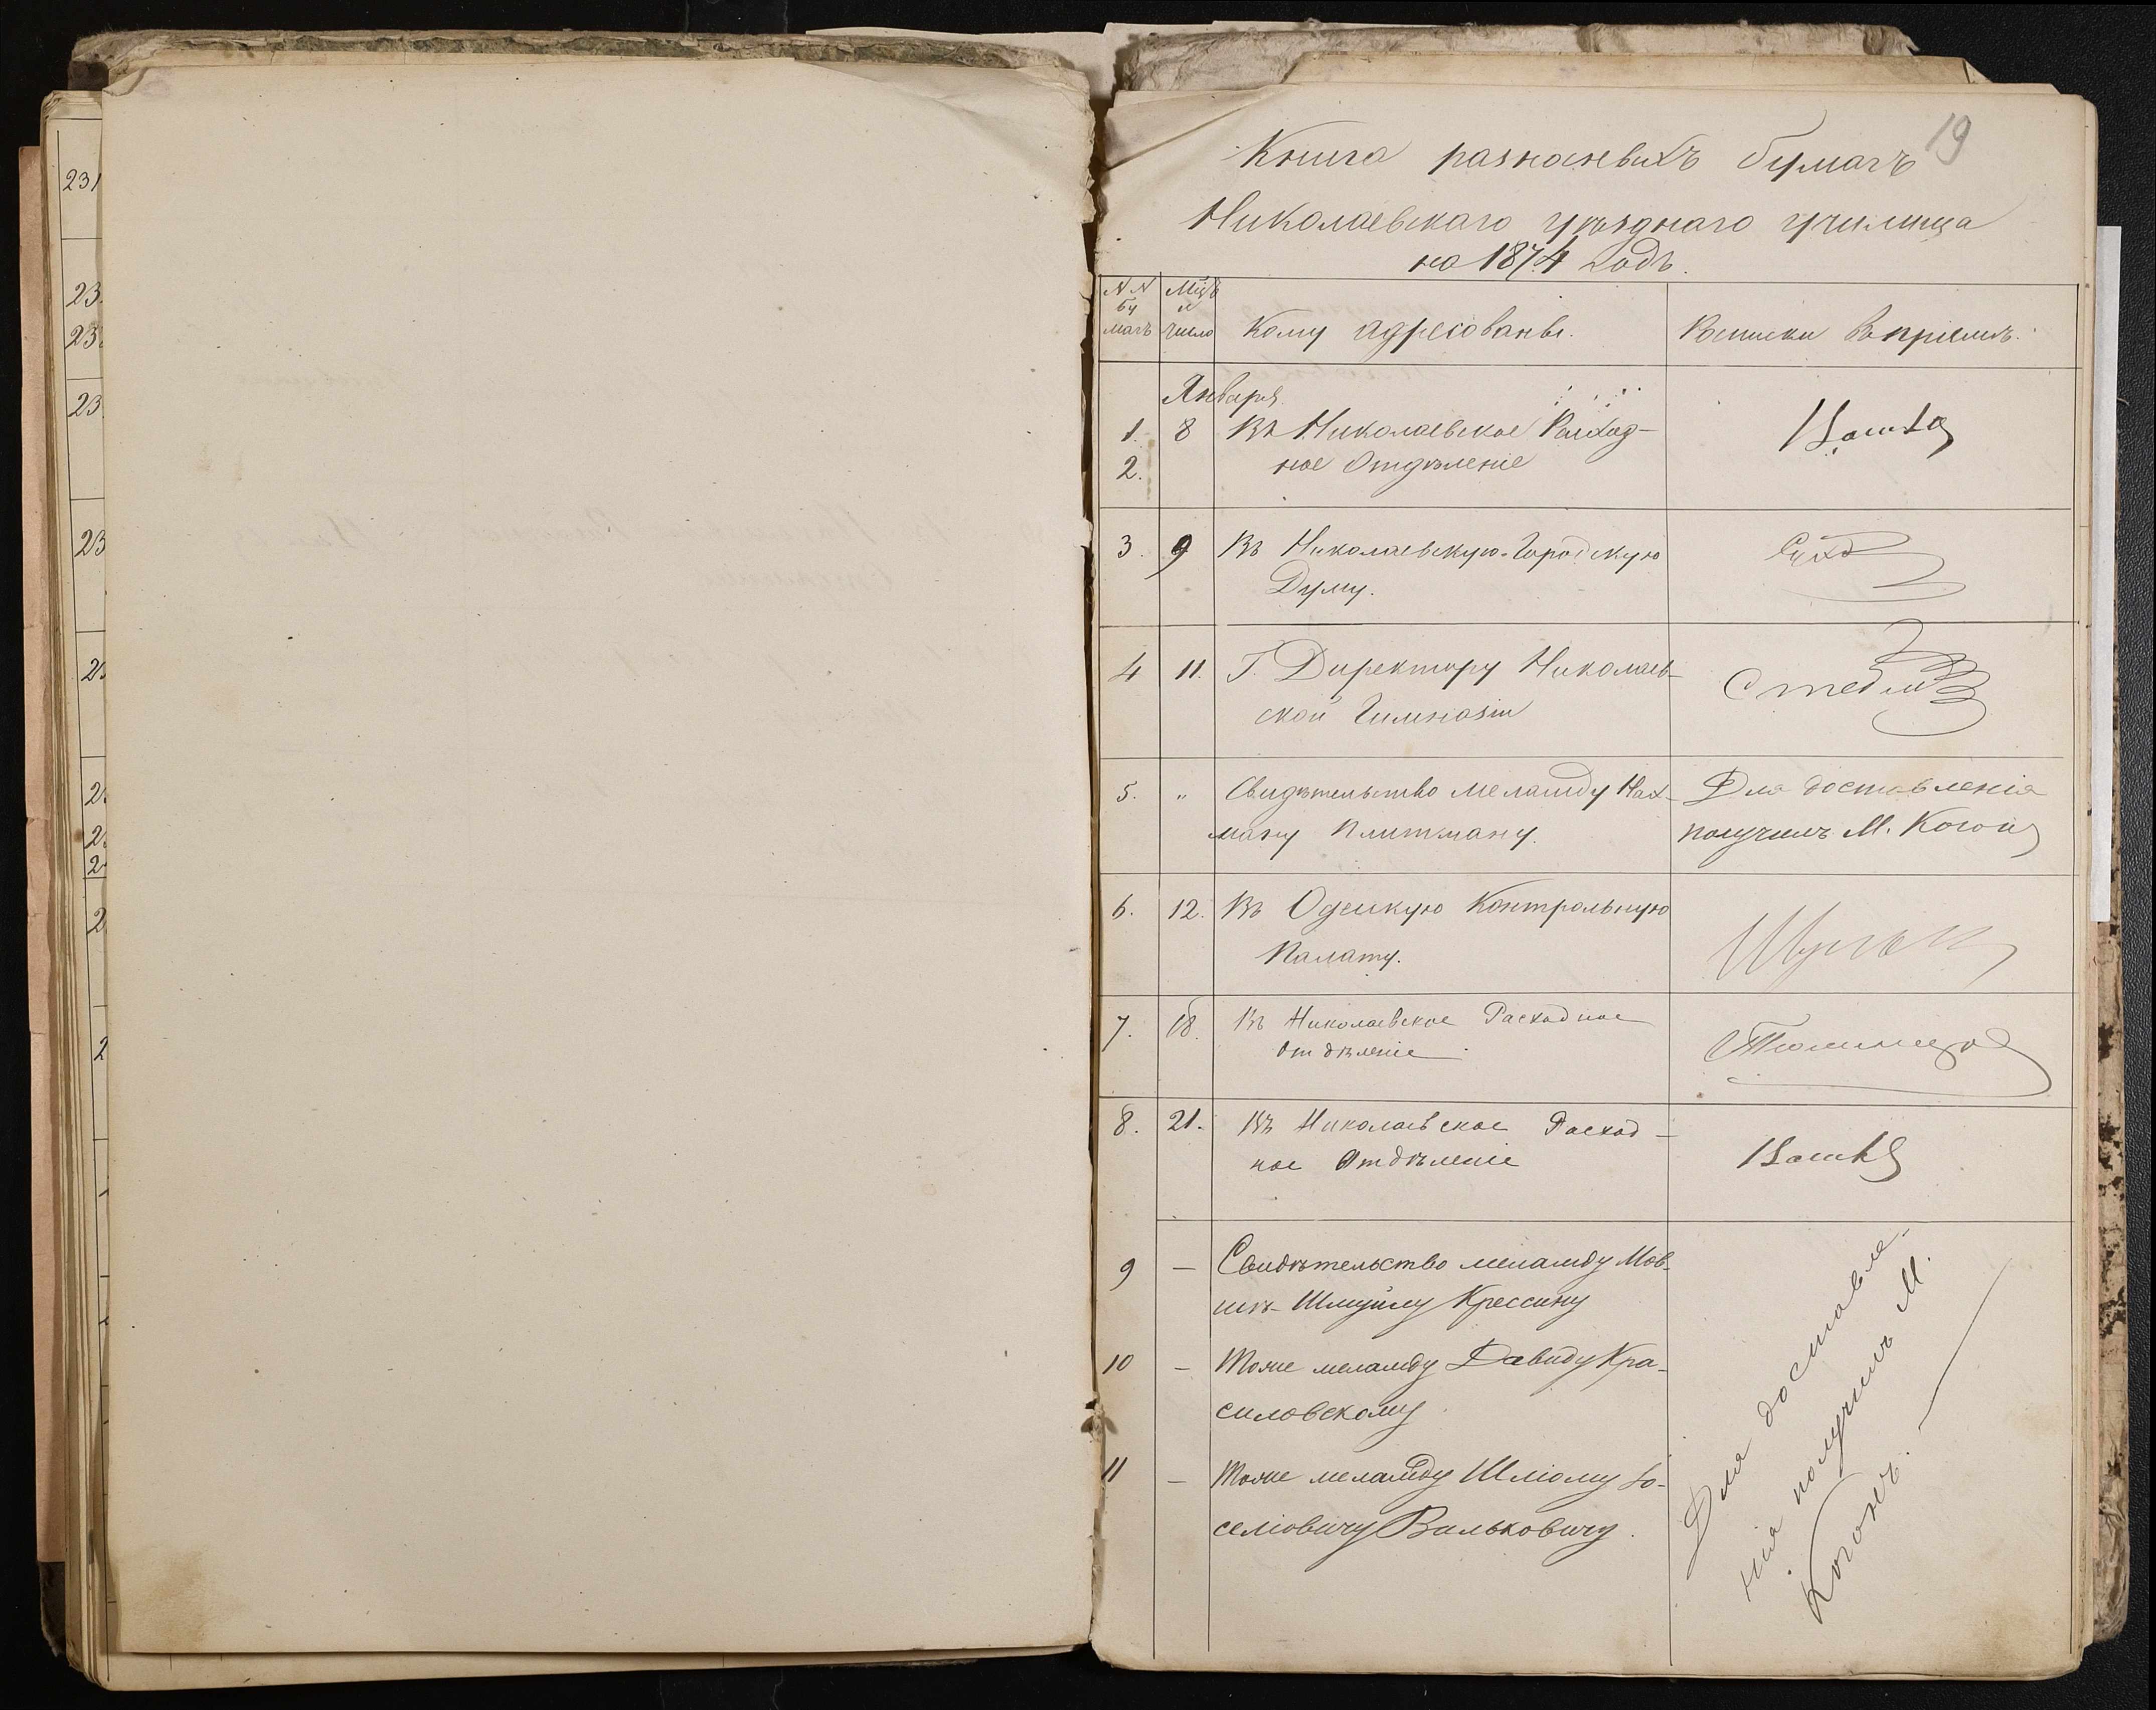 231
23
23
23
23
2
2
2
2
2
2
19
Книга разносныхъ бумагъ
Николаевскаго уѣзднаго училища
на 1874 годъ.
NN бу магъ
Мцъ и число
Кому адресованы.
Росписки въ пріемѣ.
Января
1. 8 Въ Николаевское Расход-
2. ное Отдѣленіе
3. 9 Въ Николаевскую Городскую
Думу.
4 11. Г. Директору Николаев-
ской Гимназіи
5. „ Свидѣтельство меламду Нах- Для доставленія
ману Плитману. получилъ М. Когон
6. 12. Въ Одесскую Контрольную
Палату.
7. 18. Въ Николаевское Расходное
Отдѣленіе
8. 21. Въ Николаевское Расход-
ное Отдѣленіе
9 — Свидѣтельство меламду Мов-
шѣ-Шмуйлу Крессину
10 — Тоже меламду Давиду Кра-
силовскому
11 — Тоже меламду Шліому Іо-
селіовичу Вильковичу.
Для доставле-
нія получилъ М.
Когонъ.